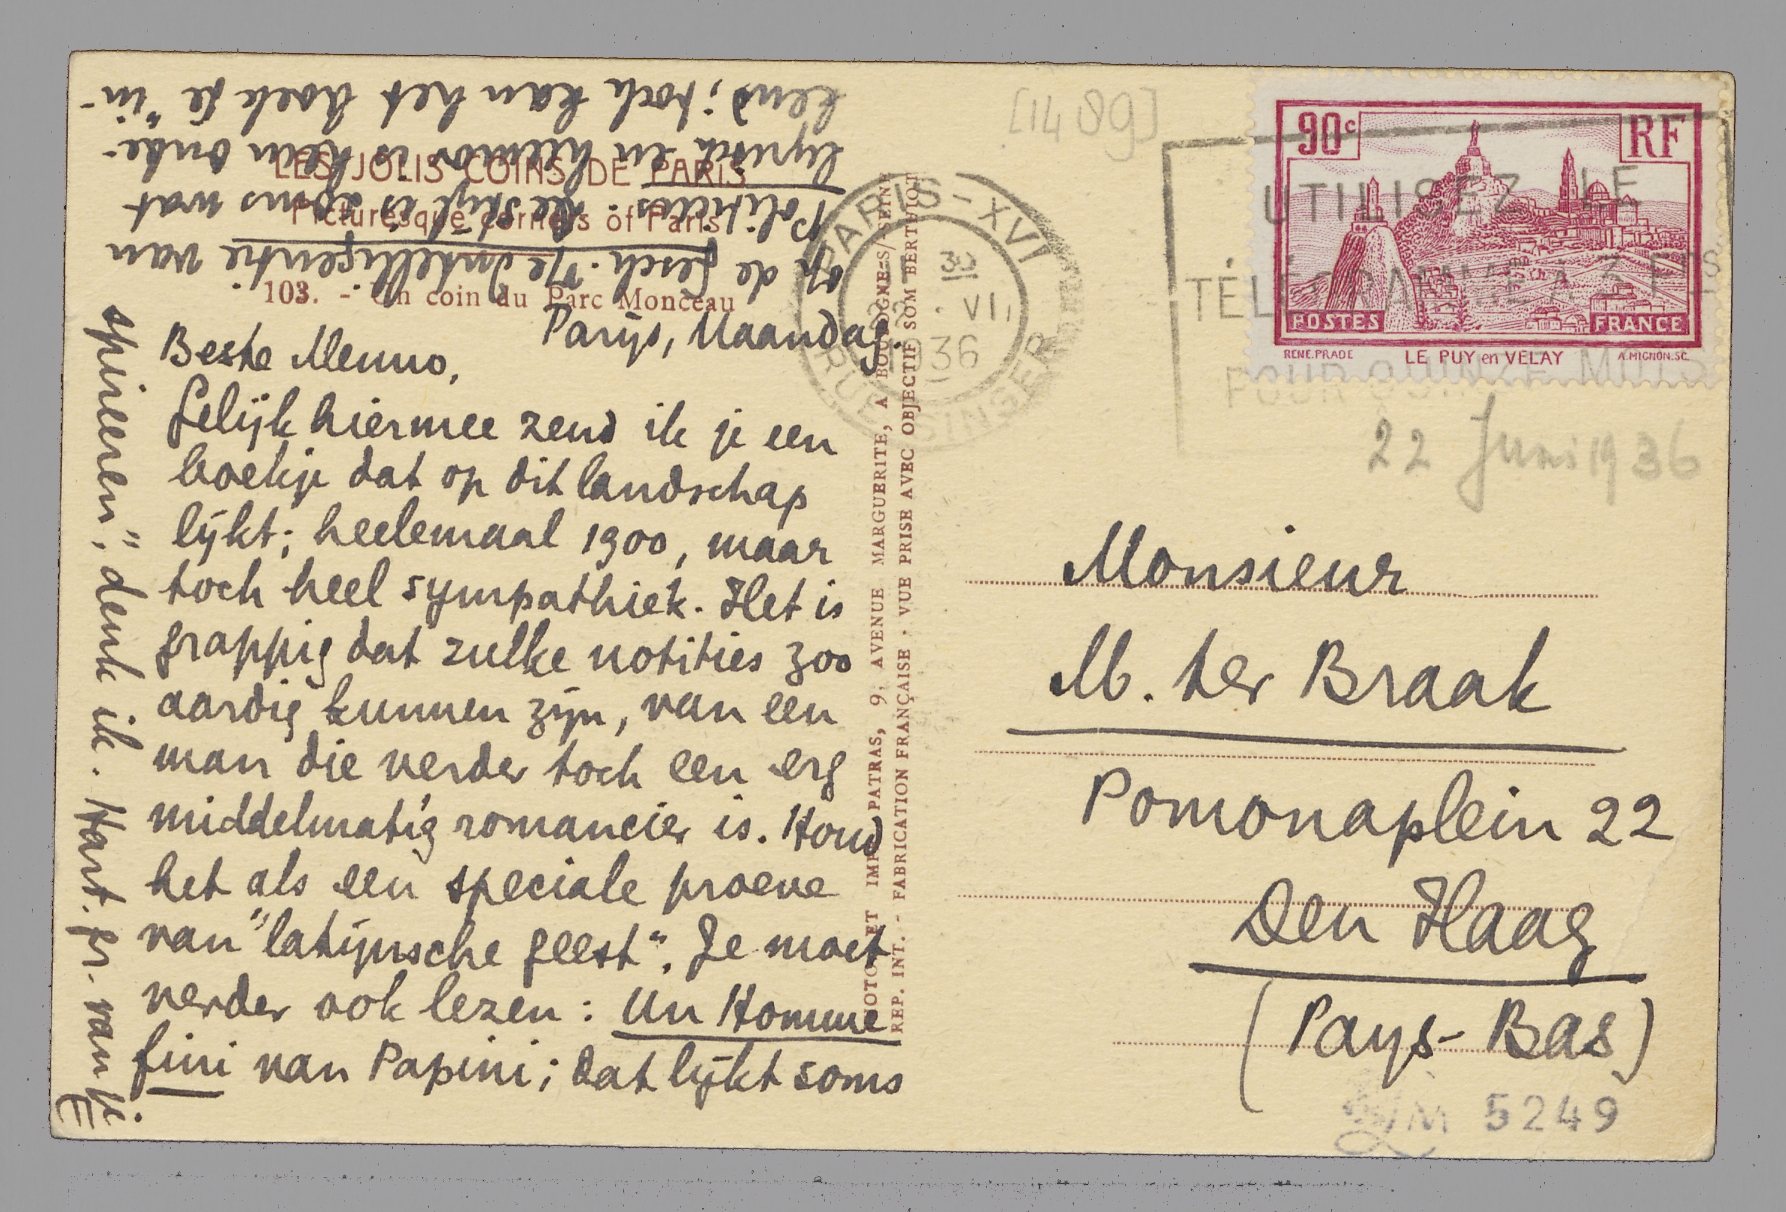 LES JOLIS COINS DE PARIS
Picturesque corners of Paris
103. - Un coin du Parc Monceau
Parijs, Maandag.
Beste Menno,
Gelijk hiermee zend ik je een
boekje dat op dit landschap
lijkt; heelemaal 1900, maar
toch heel sympathiek. Het is
grappig dat zulke notities zoo
aardig kunnen zijn, van een
man die verder toch een erg
middelmatig romancier is. Houd
het als een speciale proeve
van "latijnsche geest". Je moet
verder ook lezen: Un Homme
fini van Papini; dat lijkt soms
op de gesch. v/e Intelligentie van
Politicus. De stijl is soms wat
lyrisch en humor is hem onbe-
kend; toch kan het boek je "in-
spireeren", denk ik. Hart. gr. van je
E
PHOTO ET IMP. PATRAS, 9, AVENUE MARGUERITE, A BOULOGNE-S/SEINE
REP. INT. - FABRICATION FRANÇAISE - VUE PRISE AVEC OBJECTIF SOM BERTHIOT
[1489]
PARIS-XVI
RUE SINGER
30
22 . VI
1936
UTILISEZ LE
TÉLÉGRAMME A 3 FRS
POUR QUINZE MOTS
90c
RF
POSTES
FRANCE
RENE.PRADE
LE PUY en VELAY
A.MIGNON.SC.
22 Juni 1936
Monsieur
M. ter Braak
Pomonaplein 22
Den Haag
(Pays-Bas)
LM 5249